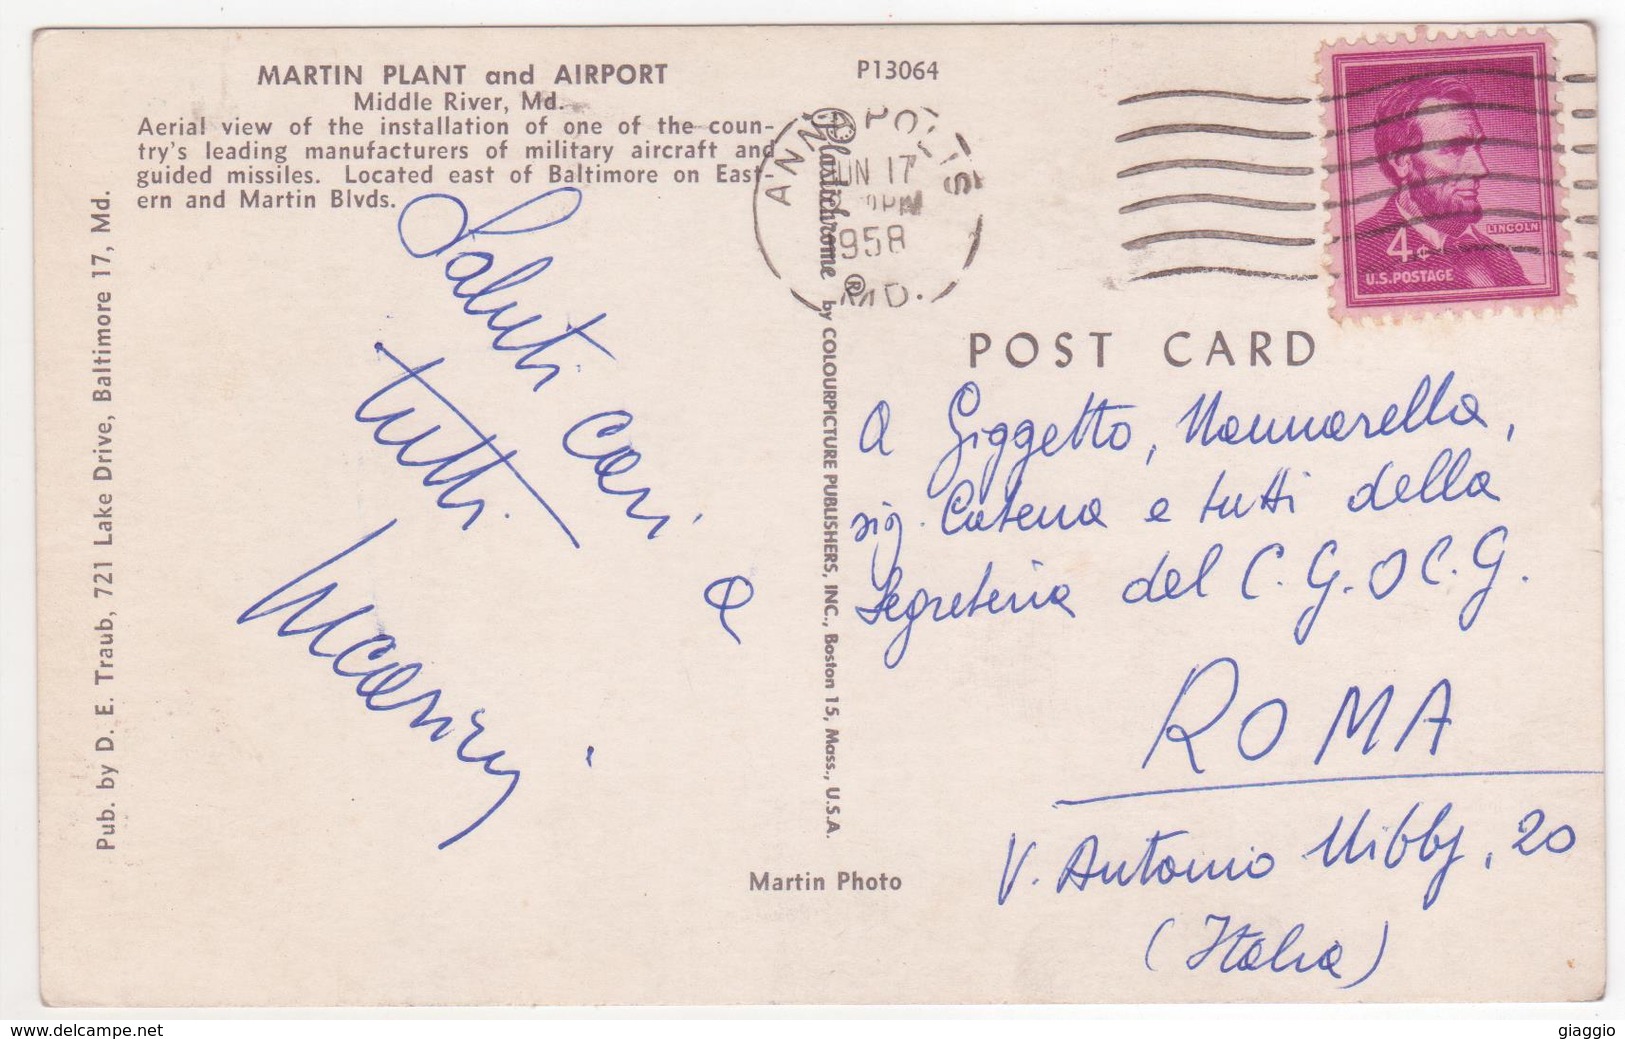 MARTIN PLANT and AIRPORT
Middle River, Md.
Aerial view of the installation of one of the coun-
try's leading manufacturers of military aircraft and
guided missiles. Located east of Baltimore on East-
ern and Martin Blvds.
P13064
Pub. by D. E. Traub, 721 Lake Drive, Baltimore 17, Md.
Saluti cari a
tutti.
Plastichrome ® by COLOURPICTURE PUBLISHERS, INC., Boston 15, Mass., U.S.A.
Martin Photo
ANNAPOLIS
JUN 17
PM
1958
MD.
LINCOLN
4¢
U.S. POSTAGE
POST CARD
A Giggetto, Nannarella,
sig. Catena e tutti della
Segreteria del C.G.O.C.G.
ROMA
V. Antonio Nibby, 20
(Italia)
www.delcampe.net
giaggio